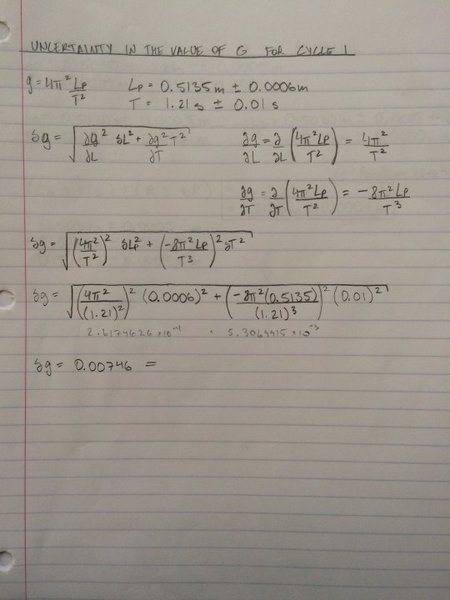 UNCERTAINTY IN THE VALUE OF G FOR CYCLE 1
g = 4π² Lp/T² Lp = 0.5135m ± 0.0006m
T = 1.21s ± 0.01s
δg = √(∂g/∂L² δL² + ∂g/∂T² T²) ∂g/∂L = ∂/∂L (4π²Lp/T²) = 4π²/T²
∂g/∂T = ∂/∂T (4π²Lp/T²) = -8π²Lp/T³
δg = √((4π²/T²)² δLp² + (-8π²Lp/T³)² δT²)
δg = √((4π²/(1.21)²)² (0.0006)² + (-8π²(0.5135)/(1.21)³)² (0.01)²)
δg = 0.00746 =